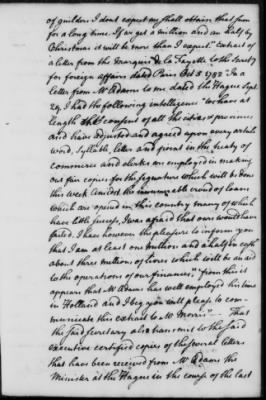 of guilders I dont expect we shall obtain that sum
for a long time. If we get a million and an half by
Christmas it will be more than I expect." Extract of
a letter from the Marquis de la Fayette to the Secrety
for foreign affairs dated Paris Oct 3 1782 "In a
letter from Mr Adams to me dated the Hague Sept
29. I had the following intelligence "We have at
length consent of all the cities & provinces
and have adjusted and agreed upon every article
word, syllable, letter and point in the treaty of
commerce and clerks are employed in making
out five copies for the signature which will be done
this week. Amidst the innumerable crowd of loans
which are opened in this country many of which
have little success, I was afraid that ours would have
failed. I have however the pleasure to inform you
that I am at least one million and a half in cash
about three millions of livres which will be an aid
to the operations of our financier," from this it
appears that Mr Adams has well employed his time
in Holland and I beg you will please to com-
municate this extract to Mr Morris." That
the said secretary also transmit to the said
executive certified copies of the several letters
that has been received from Mr Adams the
Minister at the Hague in the course of the last